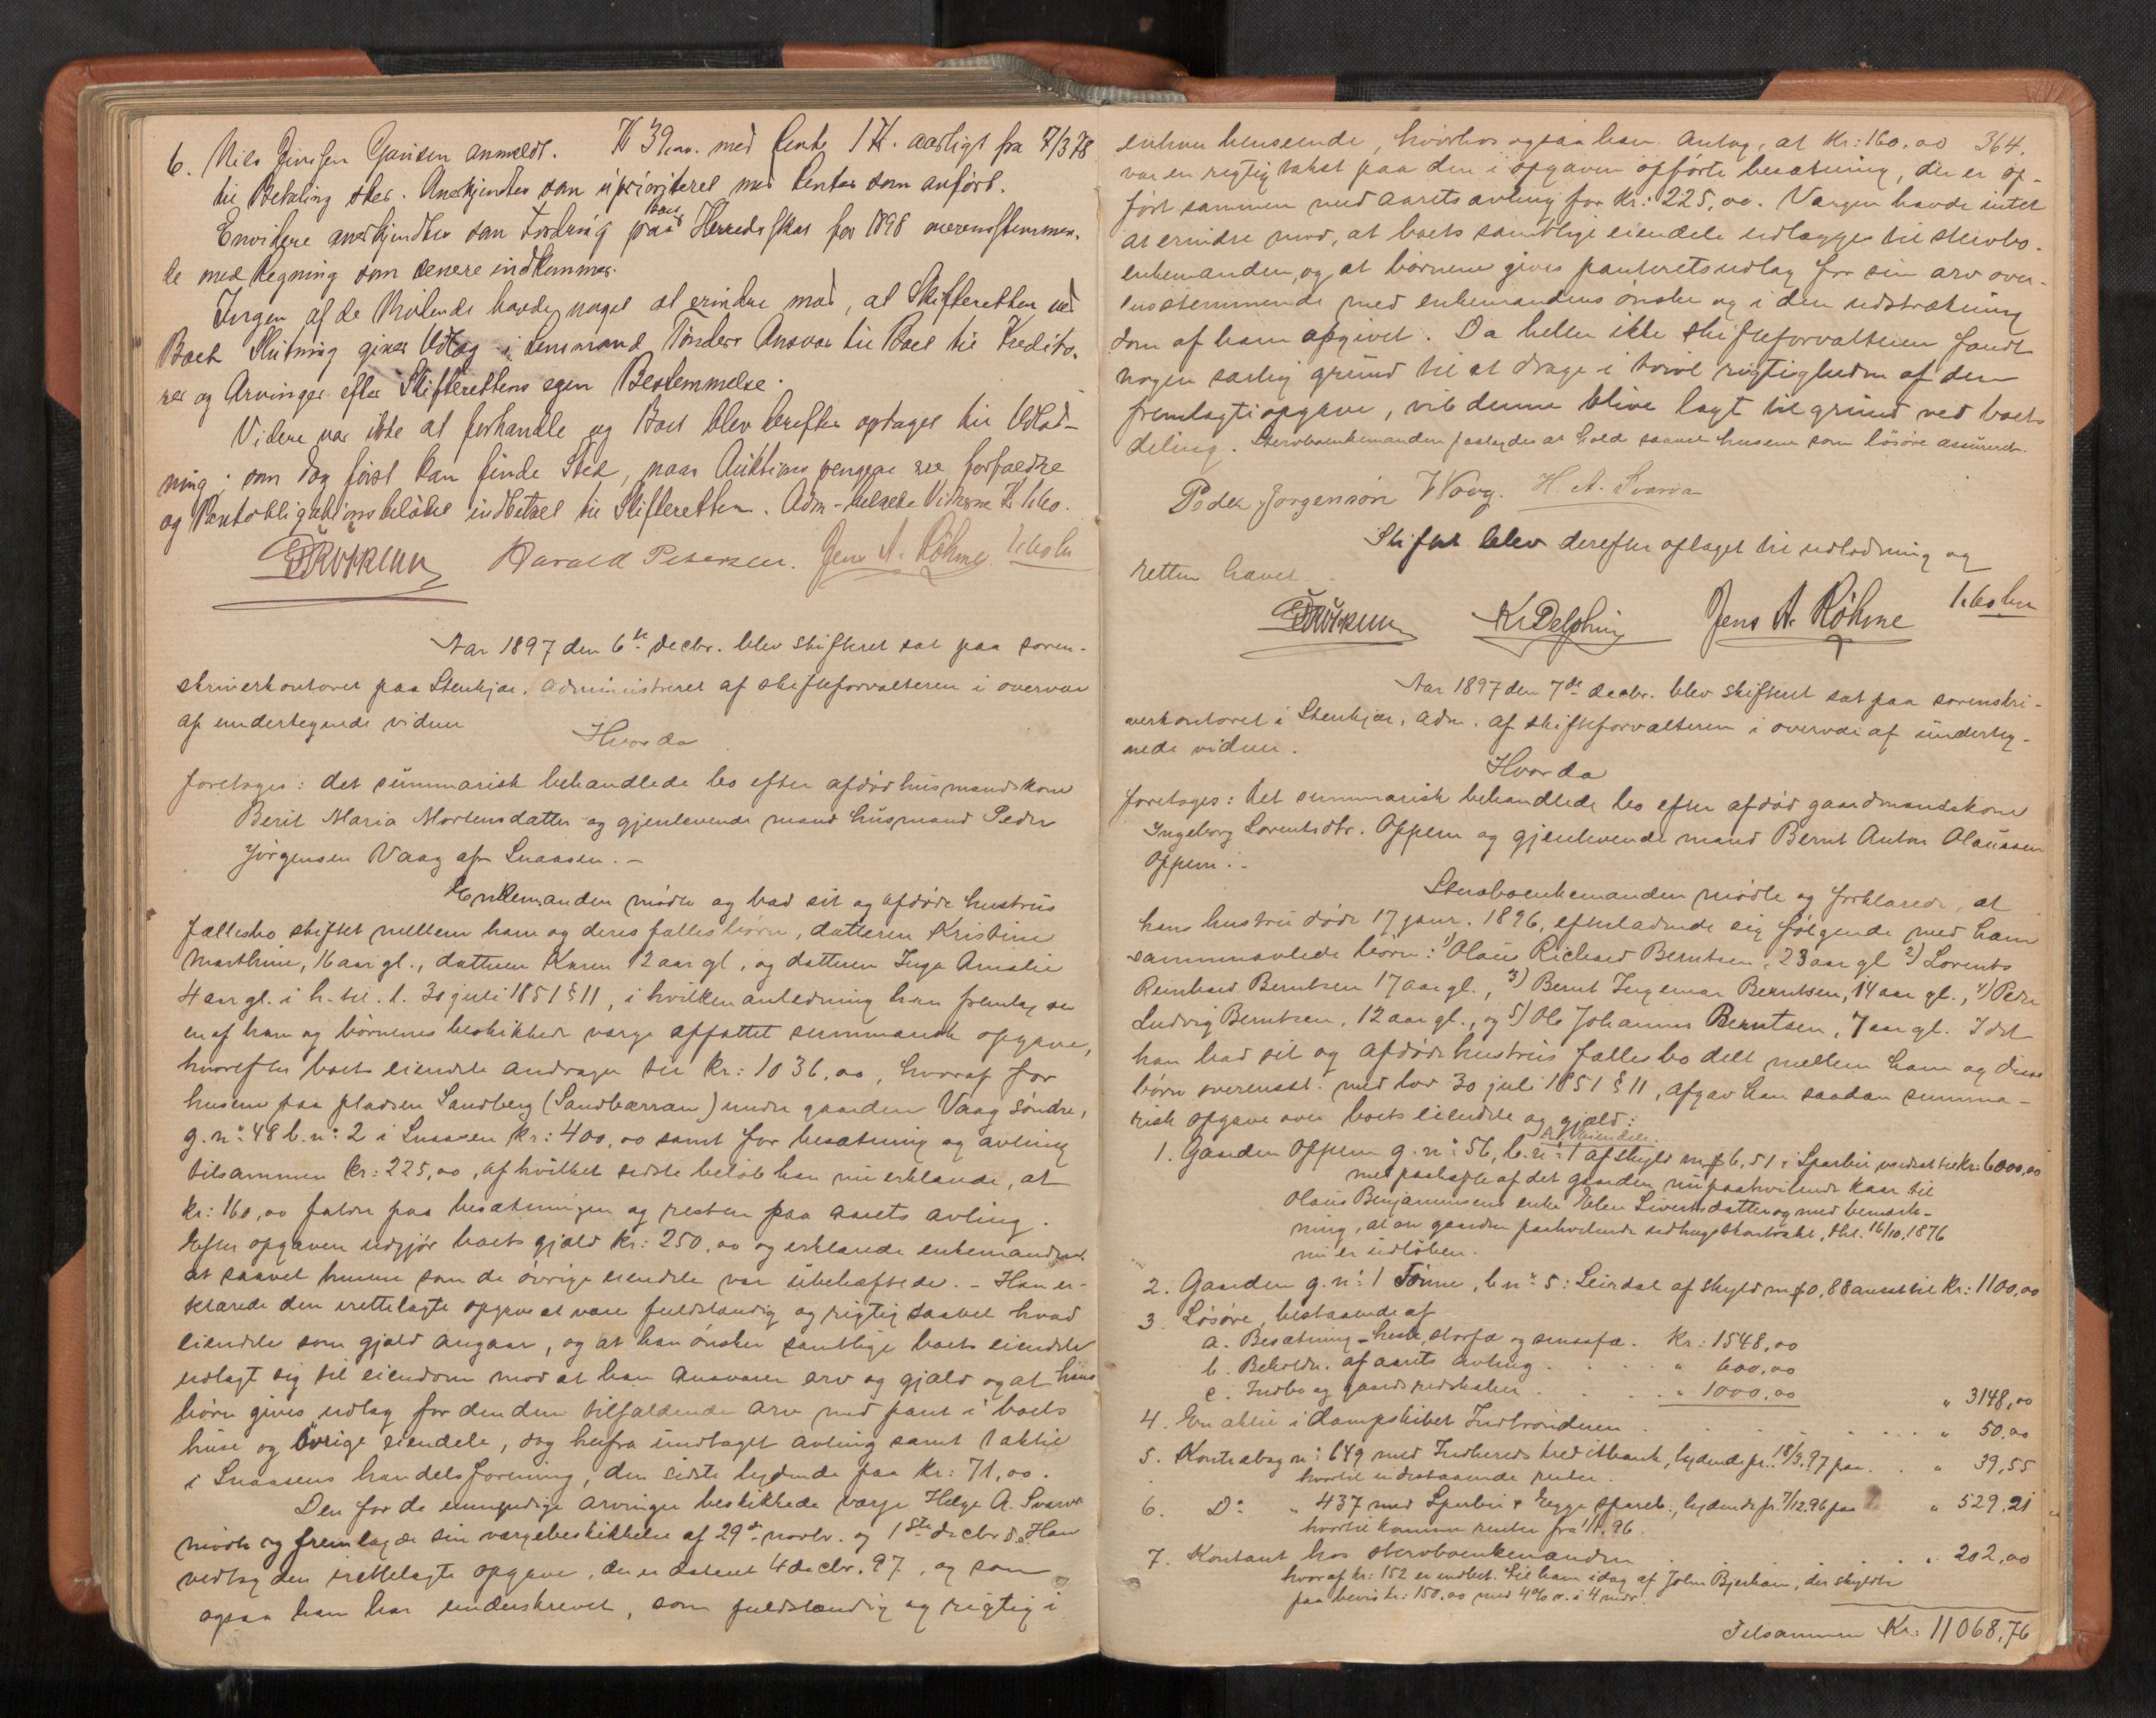 6. Nils Jensen anmeldt. Kr 39 med Rente aarligt fra 7/3 78
til Betaling sker. Anerkjendtes som uprioriteret med Renter som anført.
Envidere anerkjendtes som Fordring paa Boet Herredsskat for 1898 overensstemmen-
de med Regning som senere indkommer.
Ingen af de Mødende havde noget at erindre mod, at Skifteretten ved
Boets Slutning giver Udlæg i Lensmand Tønders Ansvar til Boet til Kredito-
rer og Arvinger efter Skifterettens egen Bestemmelse.
Videre var ikke at forhandle og Boet blev derefter optaget til Udlod-
ning; som dog først kan finde Sted, naar Auktionspengene ere forfaldne
og Pantobligationsbeløbet indbetalt til Skifteretten. Adm. Vidnerne Kr 1.60.
Harald Petersen. Jens A. Røhme 1.60 bet
Aar 1897 den 6te decbr. blev skifteret sat paa soren-
skriverkontoret paa Stenkjær, administreret af skifteforvalteren i overvær
af undertegnede vidner
Hvorda
foretoges: det summarisk behandlede bo efter afdød husmandskone
Berit Maria Mortensdatter og gjenlevende mand husmand Peder
Jørgensen Vaag af Snaasen. -
Enkemanden mødte og bad sit og afdøde hustrus
fællesbo skiftet mellem ham og deres fælles børn, datteren Kristine
Marthine, 16 aar gl., datteren Karen 12 aar gl, og datteren Inga Amalie
4 aar gl. i h. til l. 30 juli 1851 § 11, i hvilken anledning han fremlagde
en af ham og børnenes beskikkede værge affattet summarisk opgave,
hvorefter boets eiendele andrager til kr: 1036,00, hvoraf for
husene paa pladsen Sandberg (Sandbærran) under gaarden Vaag søndre,
g. n: 48 b. n: 2 i Snaasen kr: 400,00 samt for besætning og avling
tilsammen kr: 225,00, af hvilket sidste beløb han nu erklærede, at
kr: 160,00 falder paa besætningen og resten paa aarets avling.
Efter opgaven udgjør boets gjæld kr: 250,00 og erklærede enkemanden
at saavel husene som de øvrige eiendele var ubeheftede. - Han er-
klærede den irettelagte opgave at være fuldstændig og rigtig saavel hvad
eiendele som gjæld angaar, og at han ønsker samtlige boets eiendele
udlagt sig til eiendom mod at han ansvarer arv og gjæld og at hans
børn gives udlæg for den dem tilfaldende arv med pant i boets
huse og øvrige eiendele, dog herfra undtaget avling samt 1 aktie
i Snaasens handelsforening, den sidste lydende paa kr: 71,00.
Den for de umyndige arvinger beskikkede værge Helge A. Svarva
mødte og fremlagde sin værgebeskikkelse af 29de novbr. og 1ste decbr d.a. Han
vedtog den irettelagte opgave, der er dateret 4 decbr. 97, og som
ogsaa han har underskrevet, som fuldstændig og rigtig i
364.
enhver henseende, hvorhos ogsaa han antog, at kr: 160,00
var en rigtig takst paa den i opgaven opførte besætning, der er op-
ført sammen med aarets avling for kr: 225,00. Værgen havde intet
at erindre mod, at boets samtlige eiendele udlægges til stervbo-
enkemanden, og at børnene gives panteretsudlæg for sin arv over-
ensstemmende med enkemandens ønske og i den udstrækning
som af ham opgivet. Da heller ikke skifteforvalteren fandt
nogen særlig grund til at drage i tvivl rigtigheden af den
fremlagte opgave, vil denne blive lagt til grund ved boets
deling. Stervboenkemanden paalagdes at holde saavel husene som løsøre assureret.
Peder Jørgensøn Waag. H A. Svarva
Skiftet blev derefter optaget til udlodning og
retten hævet.
K. Delphin Jens A. Røhme 1.60 bet
Aar 1897 den 7de decbr. blev skifteret sat paa sorenskri-
verkontoret i Stenkjær, adm. af skifteforvalteren i overvær af underteg-
nede vidner.
Hvorda
foretoges: det summarisk behandlede bo efter afdød gaardmandskone
Ingeborg Lorentsdtr. Oppem og gjenlevende mand Bernt Anton Olaussen
Oppem. -
Stervboenkemanden mødte og forklarede, at
hans hustru døde 17 janr. 1896, efterladende sig følgende med ham
sammenavlede børn: 1) Olaus Richard Berntsen, 23 aar gl 2) Lorents
Reinhard Berntsen 17 aar gl., 3) Bernt Ingemar Berntsen, 14 aar gl., 4) Peder
Ludvig Berntsen, 12 aar gl., og 5) Ole Johannes Berntsen, 7 aar gl. Idet
han bad sit og afdøde hustrus fællesbo delt mellem ham og disse
børn overensst. med lov 30 juli 1851 § 11, afgav han saadan summa-
risk opgave over boets eiendele og gjæld:
A. Eiendele.
1. Gaarden Oppem g. n: 56, b. n: 1 af skyld m. 6,51 i Sparbu værdsat til kr: 6000,00
med paahæfte af det gaarden nu paahvilende kaar til
Olaus Benjaminsens enke Elen Sivertsdatter og med bemærk-
ning, at en gaarden paahvilende skovhugstkontrakt, thl. 16/10 1876
nu er udløben.
2. Gaarden g. n: 1 Tønne, b. n: 5: Leirdal af skyld m 0,88 ansat til kr: 1100,00
3. Løsøre, bestaaende af
a. Besætning - heste, storfæ og smaafæ. kr: 1548,00
b. Beholdn. af aarets avling . . . " 600,00
c. Indbo og gaardsredskaber . . . " 1000,00
" 3148,00
4. En aktie i dampskibet Indtrønderen . . . " 50,00
5. Kontrabog n: 649 med Indherreds kreditbank, lydende pr. 18/3 97 paa . " 39,55
hvortil indestaaende renter.
6. Do " 437 med Sparbu & Egge spareb., lydende pr. 7/12 96 paa " 529,21
hvortil kommer renter fra 1/1 96.
7. Kontant hos stervboenkemanden . . . " 202,00
hvoraf kr: 152 er indbet. til ham idag af John Bjerkan, der skyldte
paa bevis kr: 150,00 med 4% r. i 4 mdr.
Tilsammen Kr: 11068,76